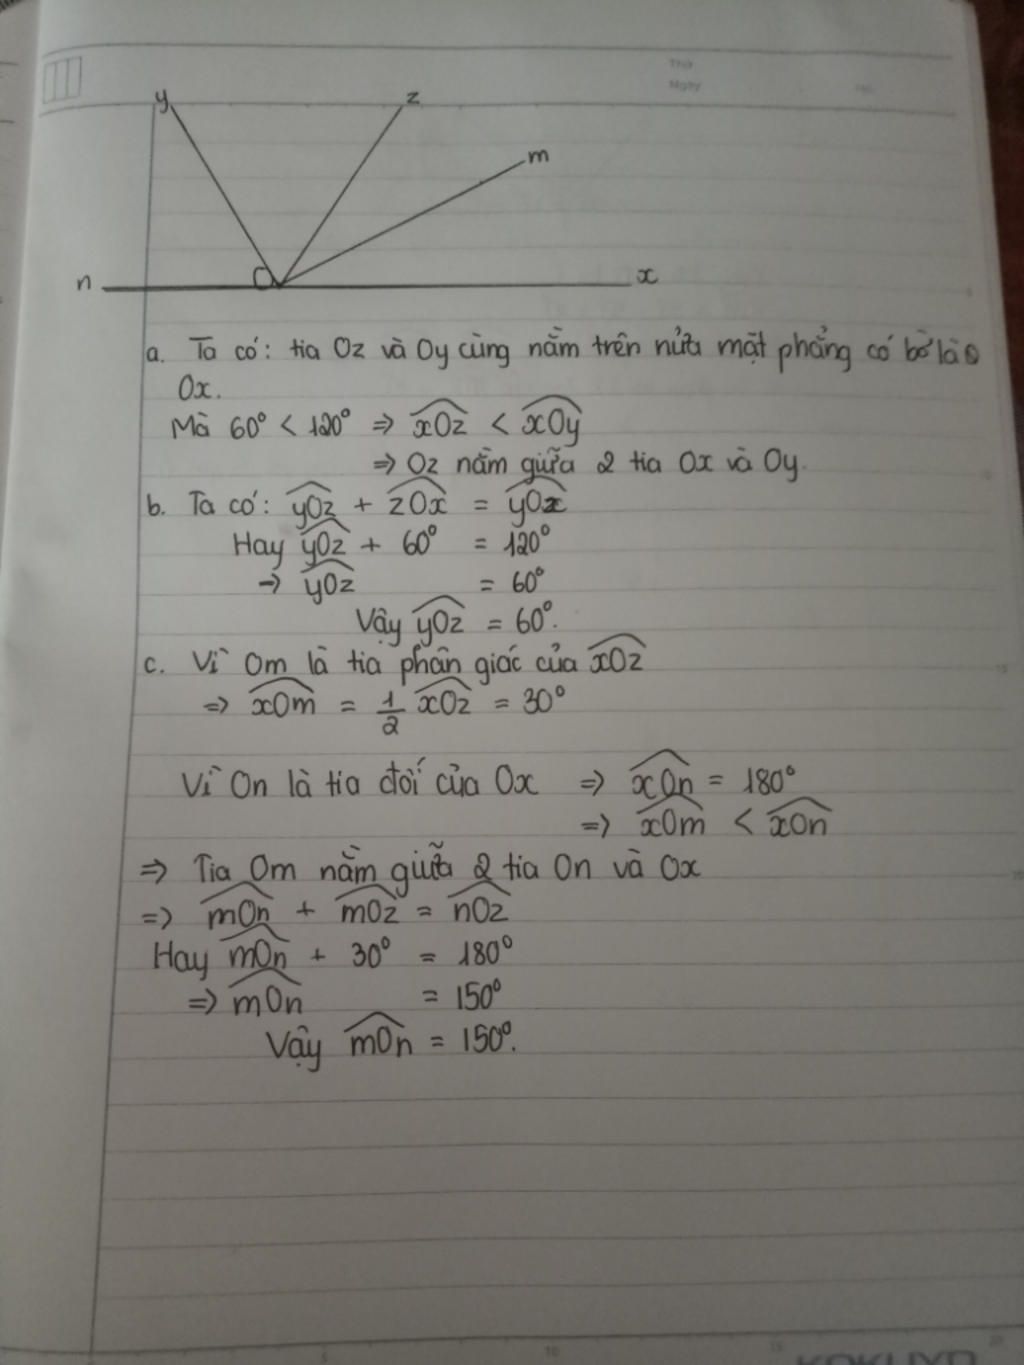 Thứ
Ngày
No.
y z
m
n O x
a. Ta có: tia Oz và Oy cùng nằm trên nửa mặt phẳng có bờ là
Ox.
Mà 60° < 120° ⇒ $\widehat{xOz}$ < $\widehat{xOy}$
⇒ Oz nằm giữa 2 tia Ox và Oy.
b. Ta có: $\widehat{yOz}$ + $\widehat{zOx}$ = $\widehat{yOx}$
Hay $\widehat{yOz}$ + 60° = 120°
→ $\widehat{yOz}$ = 60°
Vậy $\widehat{yOz}$ = 60°.
c. Vì Om là tia phân giác của $\widehat{xOz}$
⇒ $\widehat{xOm}$ = $\frac{1}{2}$ $\widehat{xOz}$ = 30°
Vì On là tia đối của Ox ⇒ $\widehat{xOn}$ = 180°
⇒ $\widehat{xOm}$ < $\widehat{xOn}$
⇒ Tia Om nằm giữa 2 tia On và Ox
⇒ $\widehat{mOn}$ + $\widehat{mOz}$ = $\widehat{nOz}$
Hay $\widehat{mOn}$ + 30° = 180°
⇒ $\widehat{mOn}$ = 150°
Vậy $\widehat{mOn}$ = 150°.
5 10 15 20
KOKUYO